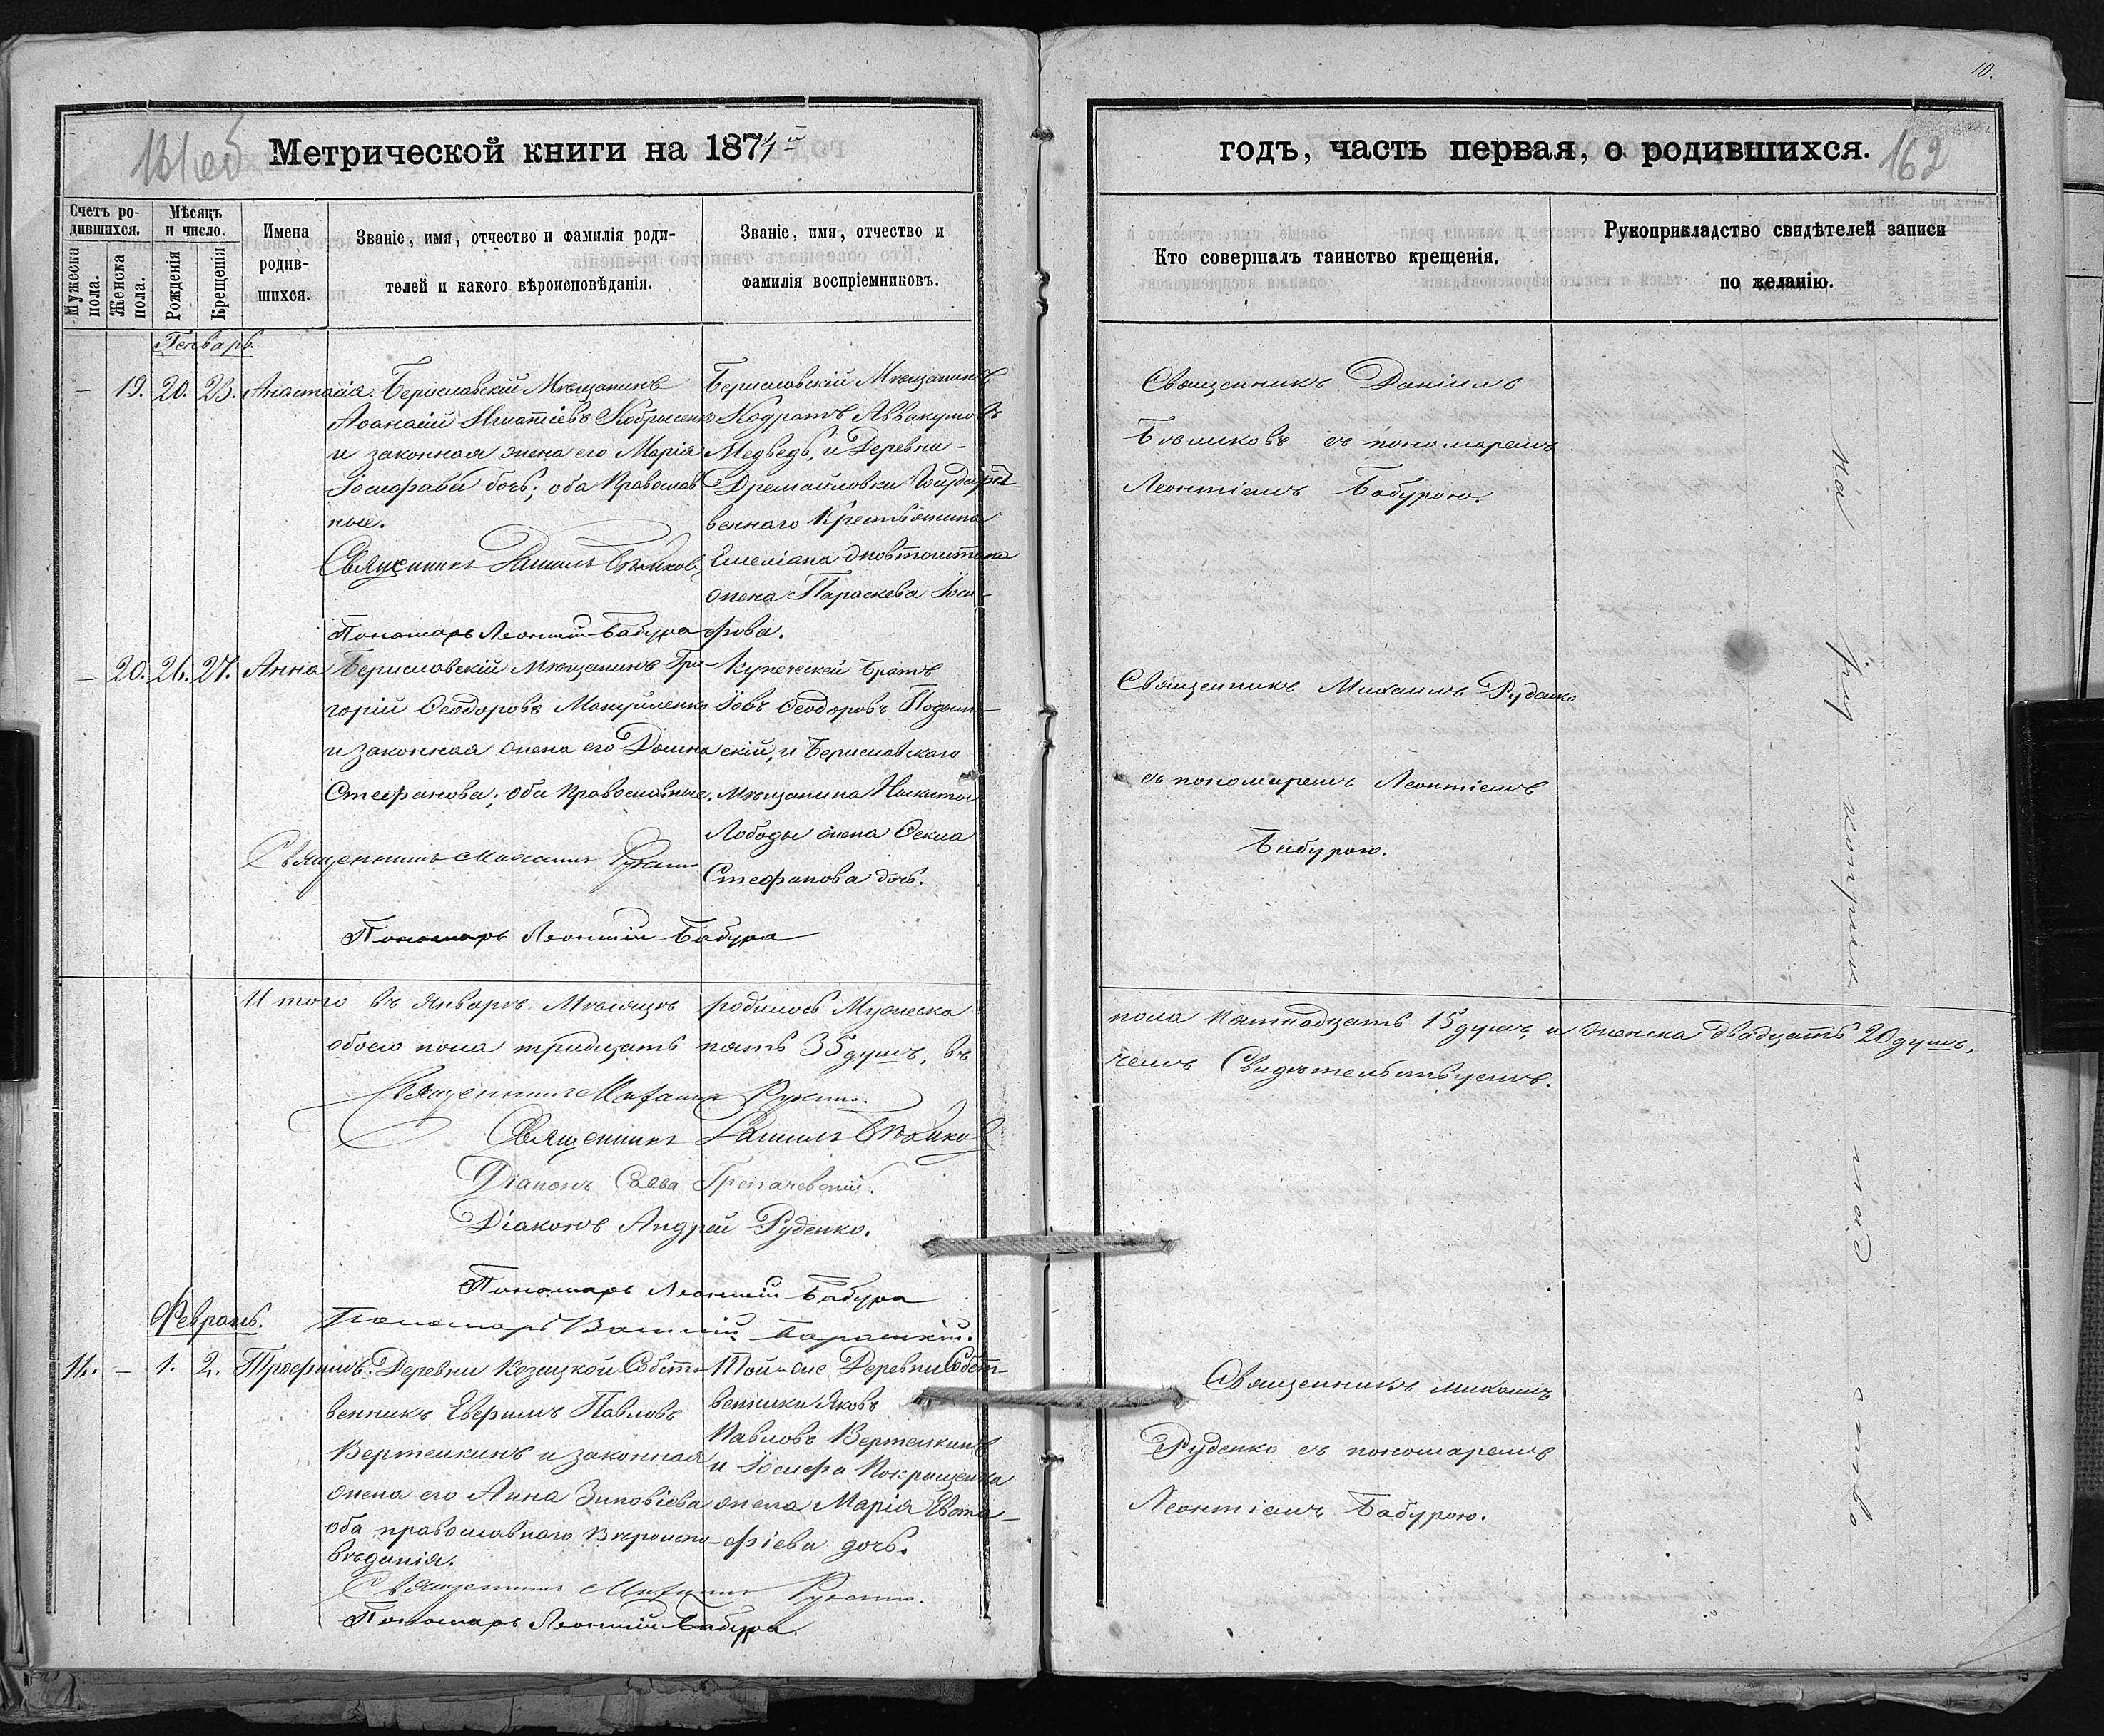 161об
Метрической книги на 1874й
Счетъ родившихся.
Мужеска пола.
Женска пола.
Мѣсяцъ и число.
Рожденія
Крещенія
Имена родившихся.
Званіе, имя, отчество и фамилія роди-
телей и какого вѣроисповѣданія.
Званіе, имя, отчество и
фамилія воспріемниковъ.
Генварь.
— 19. 20. 23. Анастасія.
Бериславскій Мѣщанинъ
Аѳанасій Игнатіевъ
и законная жена его Марія
Іосифова дочь; оба Православ
ные.
Священникъ Даніилъ Бѣликовъ
Пономарь Леонтій Бабура
Бериславскій Мѣщанинъ
Кодратъ Аввакумовъ
Медведь, и Деревни
Дремайловки
веннаго Крестьянина
Емеліана
жена Параскева Іоси-
фова.
— 20. 26. 27. Анна
Бериславскій Мѣщанинъ Гри-
горій Ѳеодоровъ Мануйленко
и законная жена его Домна
Стефанова; оба Православные.
Священникъ Михаилъ Руденко
Пономарь Леонтій Бабура
Купеческій Братъ
Іовъ Ѳеодоровъ
скій, и Бериславскаго
Мѣщанина Никиты
Лободы жена Ѳекла
Стефанова дочь.
Итого въ Январѣ Мѣсяцѣ родилось Мужеска
обоего пола тридцать пять 35 душъ, въ
Священникъ Михаилъ Руденко
Священникъ Даніилъ Бѣликовъ
Діаконъ Савва
Діаконъ Андрей Руденко.
Пономарь Леонтій Бабура
Пономарь
Февраль.
16. — 1. 2. Трофимъ.
Деревни Козацкой Собст-
венникъ Евфимъ Павловъ
Вертелкинъ и законная
жена его Анна Зиновіева
оба православнаго Вѣроиспо-
вѣданія.
Священникъ Михаилъ Руденко.
Пономарь Леонтій Бабура.
Той-же Деревни Собст-
венники Яковъ
Павловъ Вертелкинъ
и Іосифа
жена Марія Евста-
фіева дочь.
10.
годъ, часть первая, о родившихся.
162
Кто совершалъ таинство крещенія.
Рукоприкладство свидѣтелей записи
по желанію.
Священникъ Даніилъ
Бѣликовъ съ пономаремъ
Леонтіемъ Бабурою.
Священникъ Михаилъ Руденко
съ пономаремъ Леонтіемъ
Бабурою.
пола пятнадцать 15 душъ, и женска двадцать 20 душъ,
чемъ Свидѣтельствуемъ.
Священникъ Михаилъ
Руденко съ пономаремъ
Леонтіемъ Бабурою.